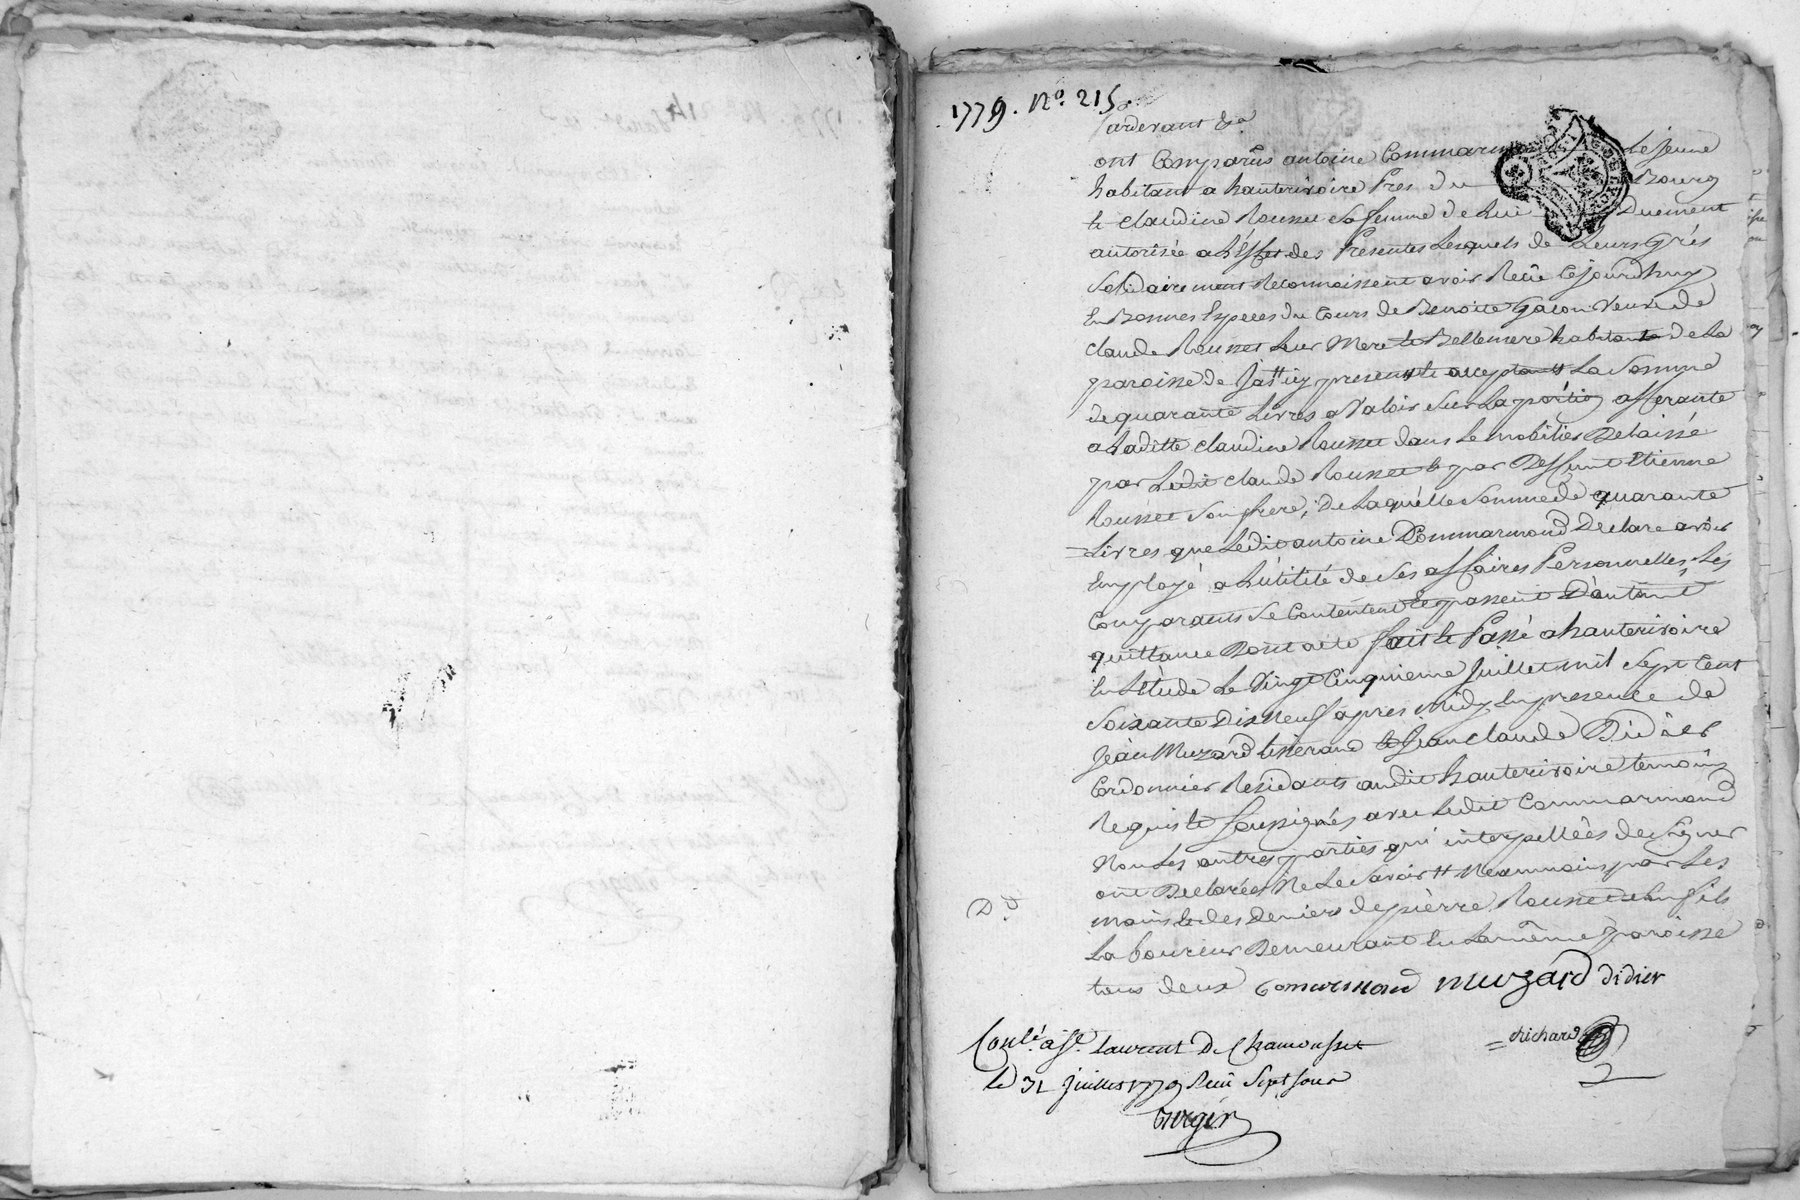 1779. No. 215.
Pardevant &a
ont Comparûs antoine Commarmond Lejeune
habitant a hauterivoire Pres du Bourg
& claudine Rousset sa femme de Lui Duement
autorisée a L'éffet des Presentes Lesquels de Leurs Grés
Solidairement Reconnoissent avoir Recû Cejourdhuy
En Bonnes Especes du Cours de Benoite Gaion Veuve de
claude Rousset Leur Mere & Bellemere habitante de La
paroisse de presente & acceptante La Somme
de quarante Livres a Valoir Sur La portion afferante
a Laditte claudine Rousset dans Le mobilier Delaissé
par Ledit claude Rousset & par Deffunt Etienne
Rousset Son frere, de Laquelle Somme de quarante
Livres que Ledit antoine Commarmond Declare avoir
Employé a L'utilité de Ses affaires Personnelles, Les
Comparants Se Contentent & passent D'autant
quittance Dont acte fait & Passé a hauterivoire
En L'étude Le Vingt Cinquieme Juillet mil Sept Cent
Soixante Dix Neuf apres midy En presence de
Jean Muzard tisserand & Jean claude Didier
Cordonnier Residants audit hauterivoire temoins
Requis & Soussignés avec Ledit Commarmond
Non Les autres parties qui interpellées de Signer
ont Declarées Ne Le Savoir # Neammoins par Les
mains & des deniers de pierre Rousset Son fils
Laboureur Demeurant En La même paroisse
D. d.
tous deux Comarmond muzard didier
Conlé. a St. Laurent De Chamousset
Richard
Le 31 Juillet 1779 Reçu Sept Sous